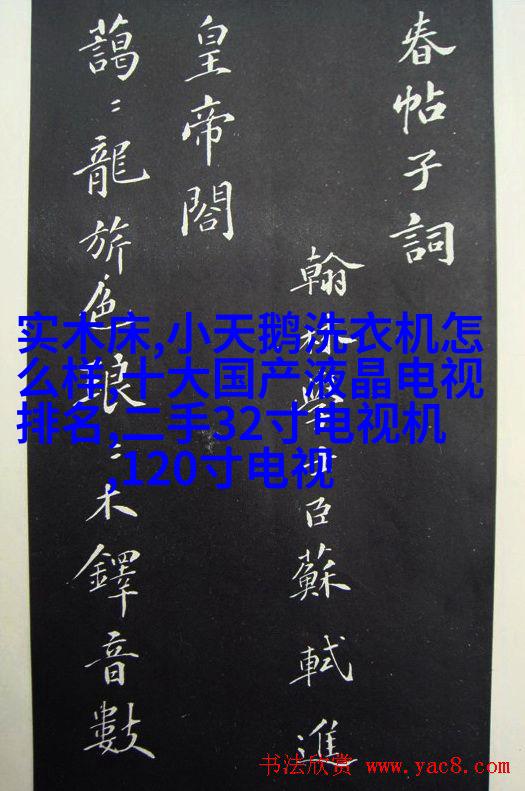 春帖子詞
翰林學士臣蘇軾進
皇帝閤
藹〻龍旂色琅〻木鐸音數
实木床,小天鹅洗衣机怎
么样,十大国产液晶电视
排名,二手32寸电视机
,120寸电视
书法欣赏 www.yac8.com